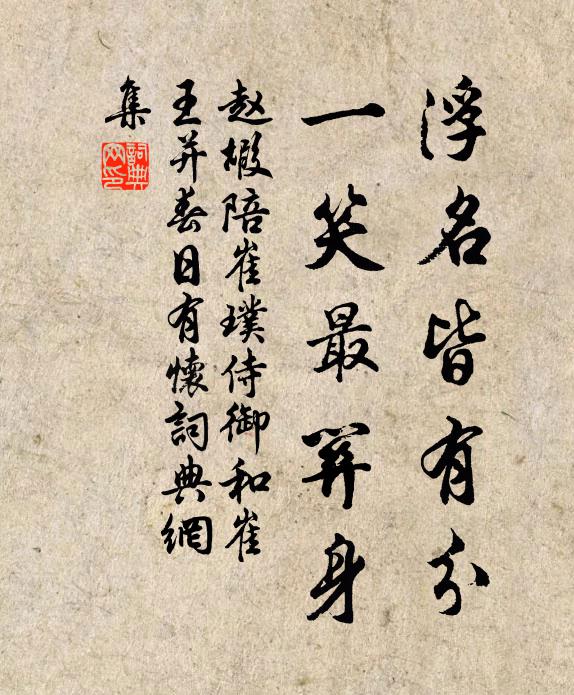 浮名皆有分
一笑最關身
赵嘏陪崔璞侍御和崔
王并春日有懷詞典網
集
詞典
网印